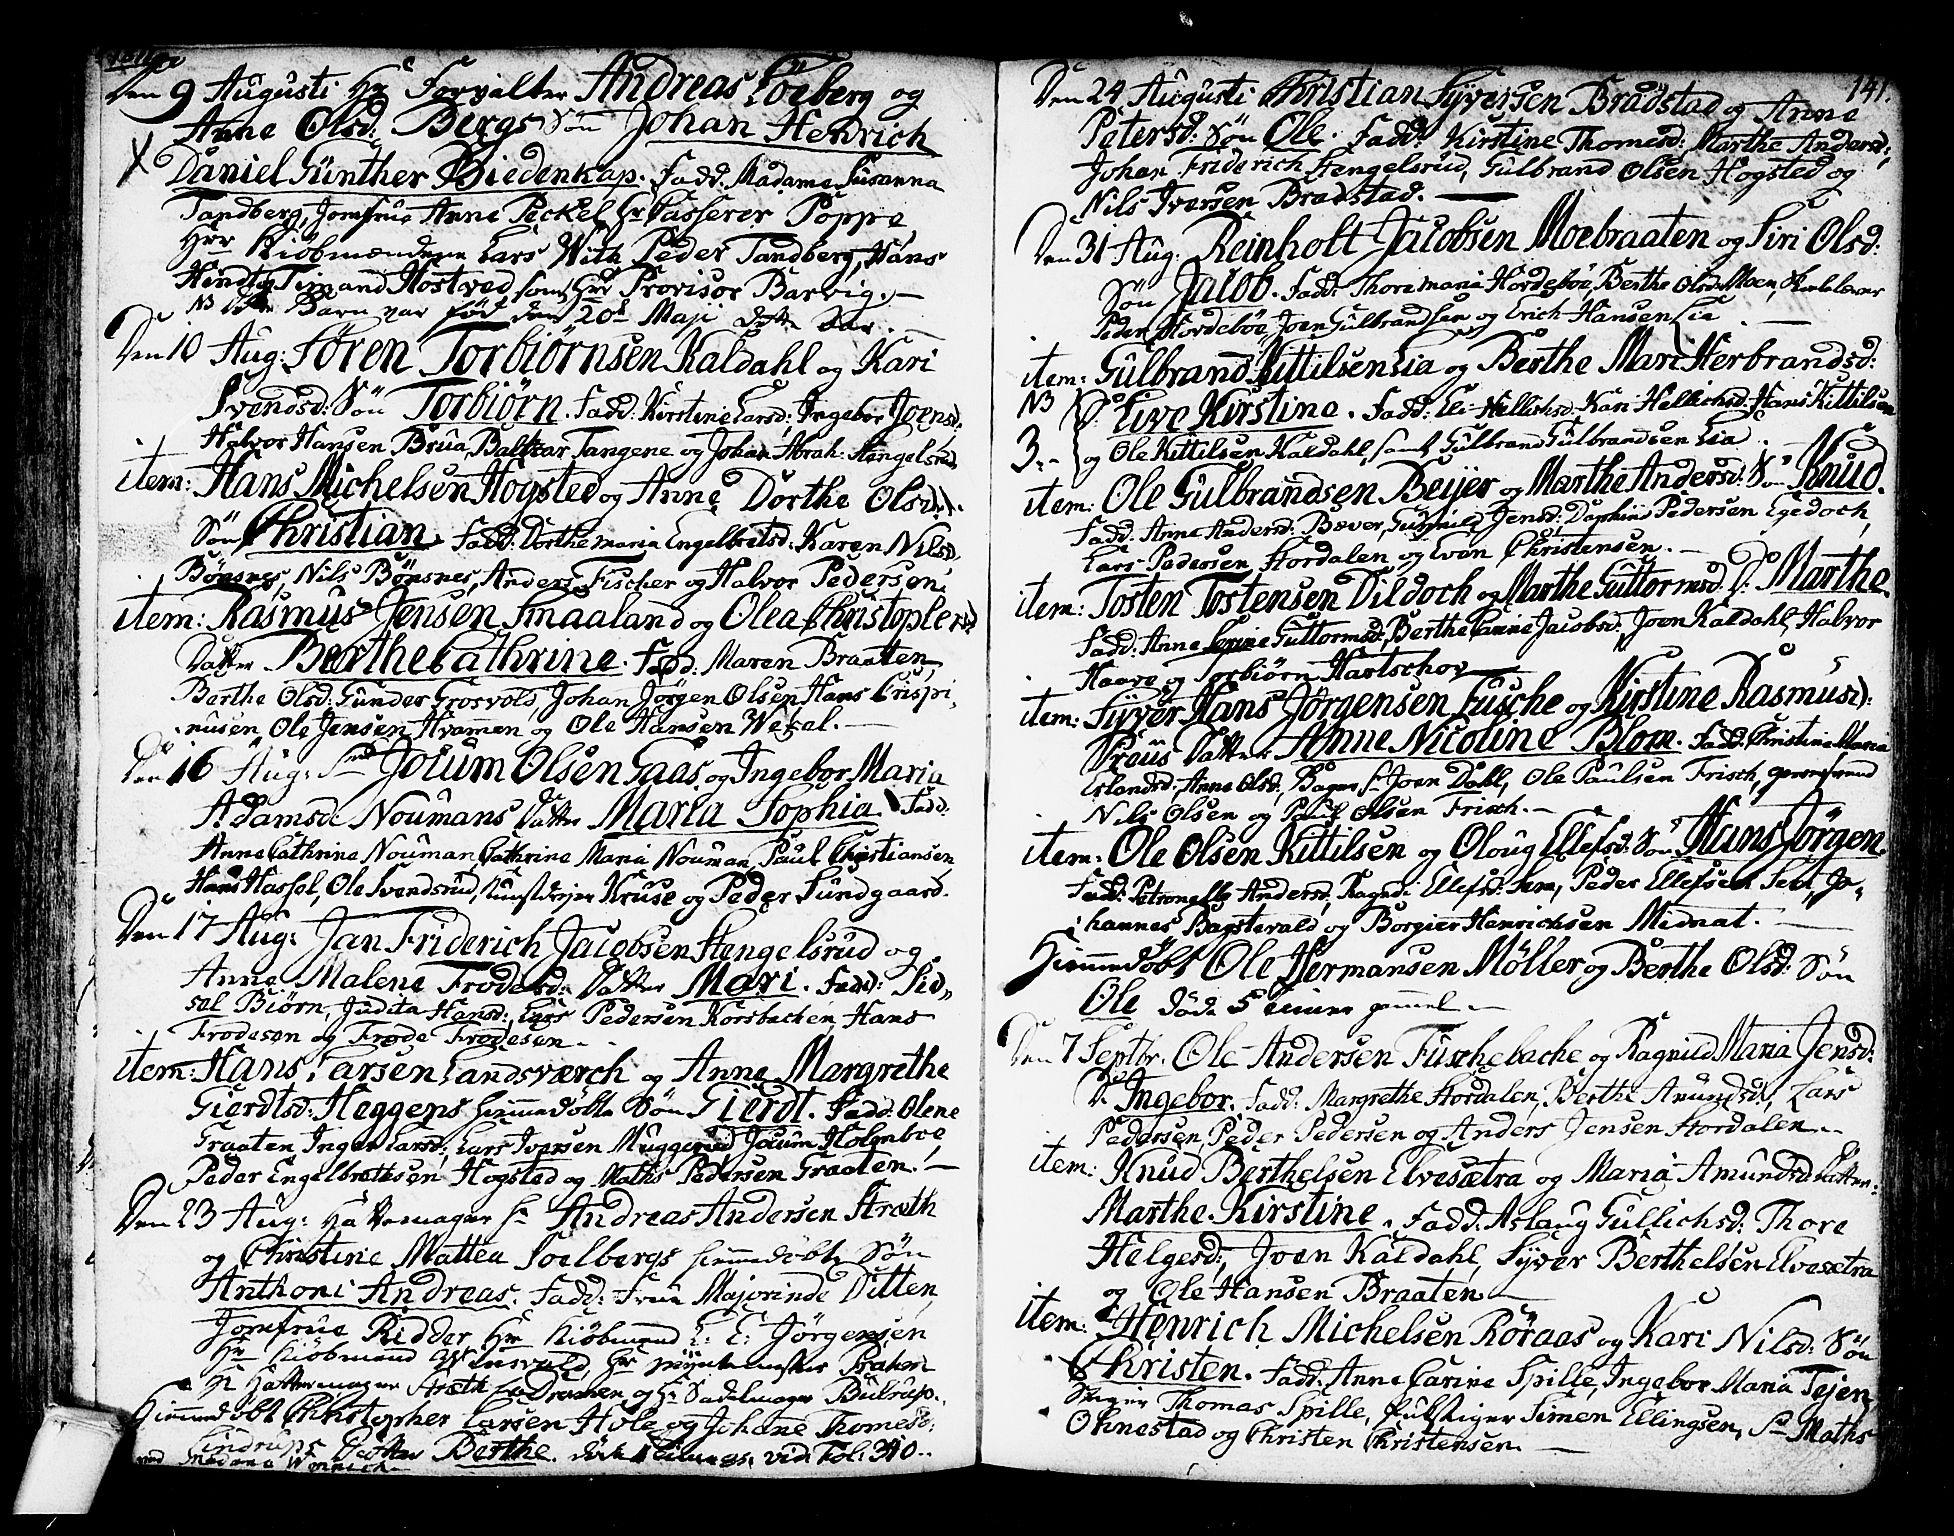 Den 9 Augusti Hr Forvalter Andreas Löeberg og
Anne Olsd: Bergs Sön Johan Henrich
Daniel Günther Biedenkap. Fadd. Madame Susanna
Tandberg, Jomfrue Anne Peckel Hr Casserer Poppe,
Hrr Kiöbmændene Lars With Peder Tandberg, Hans
Tim and Hostved samt Hr Provisor Barvig.
NB dette Barn var föd den 20d Maji dette Aar.
Den 10 Aug: Sören Torbiörnsen Kaldahl og Kari
Svendsd: Sön Torbiörn. Fadd: Kirstine Larsd: Ingebor Joensd,
Halvor Hansen Brua, Baltzar Tangene og Johan Abrah: Hengelsrud
item: Hans Michelsen Hogsted og Anne Dorthe Olsd:
Sön Christian. Fadd: Dorthe maria Engelbretsd. Karen Nilsd.
Bönsnes, Nils Bönsnes, Anders Fischer og Halvor Pedersen.
item: Rasmus Jensen Smaaland og Olea Christophersd
Datter Berthe Cathrine. Fad: Maren Braaten,
Berthe Olsd: Gunder Grosvold, Johan Jörgen Olsen Hans Crispi,
nusen Ole Jensen Hvammen og Ole Hansen Wessel.
Den 16 Aug: Jocum Olsen Gaas og Ingebor Maria
Adamsd: Noumans Datter Maria Sophia. Fadd:
Anne Cathrine Nouman Cathrine Maria Nouman, Paul Christiansen
Hans Hassel, Ole Svendsrud, Kunstdreyer Kruse og Peder Sundgaard.
Den 17 Aug: Jan Friderich Jacobsen Hengelsrud og
Anne Malene Frodesd: Datter Mari. Fadd: Sid-
sel Biörn, Judita Hansd:, Lars Pedersen Korsbachen, Hans
Frodesen og Frode Frodesen.
item: Hans Larsen Landsværch og Anne Margrethe
Gierdtsd: Heggens hiemmedöbte Sön Gierdt. Fadd: Olene
Graaten, Inger Larsd:, Lars Iversen Muggerud Jocum Holmboe,
Peder Engelbretsen Hogsted og Mathis Pedersen Graaten.
Den 23 Aug: Hattemager Sr Andreas Andersen Stræth
og Christine Mattea Soelbergs hiemmedöbte Sön
Anthoni Andreas. Fadd: Frue Majorinde Ditten,
Jomfrue Ridder, Hrr Kiöbmand E: E: Jörgensen
Hr Kiöbmand Winsvold, Hr Myntemester Prahm
Sr Hattemager Stræth fra Dramen og Sr Sadelmager Bulrup.
Hiemmedöbt Christopher Larsen Hole og Johane Thomesd:
Lindrups Datter Berthe. vid: Fol: 310.
141.
Den 24 Augusti Christian Syversen Bradstad og Anne
Petersd: Sön Ole. Fadd: Kirstine Thomesd: Marthe Andersd:,
Johan Friderich Hengelsrud, Gulbrand Olsen Hogsted og
Nils Iversen Bradstad.
Den 31 Aug: Reinholt Jacobsen Moebraaten og Siri Olsd:
Sön Jacob. Fadd: Thore maria Hordeböe, Berthe Olsd: Moen,
Peder Hordeböe, Joen Gulbrandsen og Erich Hansen Lia.
item: Gulbrand Kittilsen Lia og Berthe Mari Herbrandsd:
NB Dr Live Kirstine. Fadd: Eli Hellichsd. Kari Hellichsd: Hans Kittilsen
3:- og Ole Kittilsen Kaldahl, samt Gulbrand Gulbrandsen Lia.
item: Ole Gulbrandsen Beijer og Marthe Andersd: Sn Knud.
Fadd: Anne Andersd: Bæver, Gunnild Jensd: Daphins Pedersen Egedoch,
Lars Pedersen, Hordalen og Even Christensen.
item: Tosten Tostensen Dildoch og Marthe Guttormsd. Dr Marthe
Fadd: Anne Lovise Guttormsd:, Berthe Canine Jacobsd: Joen Kaldahl, Halvor
Haare og Torbiörn Hartschov
item: Syver Hans Jörgensen Fusche og Kirstine Rasmusd:
Præüs Datter Anne Nicoline Blom. Fadd: Christine Maria
Eslandsd:, Anne Olsd: Joen Dahl, Ole Paulsen Frisch,
Nils Olsen og Paul Olsen Frisch.
item: Ole Olsen Kittilsen og Oloug Ellefsd: Sön Hans Jörgen
Fadd: Petronelle Andersd, Ragndi Ellefsd: Sem, Peder Ellefsen Sem, Jo-
hannes Bagstevald og Borgier Henrichsen Midnat.
Hiemmedöbt Ole Hermansen Möller og Berthe Olsd: Sön
Ole döde 5 timer gammel.
Den 7 Septbr. Ole Andersen Fuschebache og Ragnild Maria Jensd:
Dr Ingebor. Fadd: Margrethe Hordalen, Berthe Amundsd:, Lars
Pedersen, Peder Pedersen og Anders Jensen Hordalen.
item: Knud Berthelsen Elvesætra og Maria Amundsd Datter:
Marthe Kirstine. Fadd: Aslaug Gullichsd: Thore
Helgesd:, Joen Kaldahl, Syver Berthelsen Elvesætra
og Ole Hansen Braaten.
item: Henrich Michelsen Röraas og Kari Nilsd: Sön
Christen. Fadd: Anne Carine Spille, Ingebor Maria Tejen,
Thomas Spille, Simen Ellingsen, Sr Maths
Ohnestad og Christen Christensen.